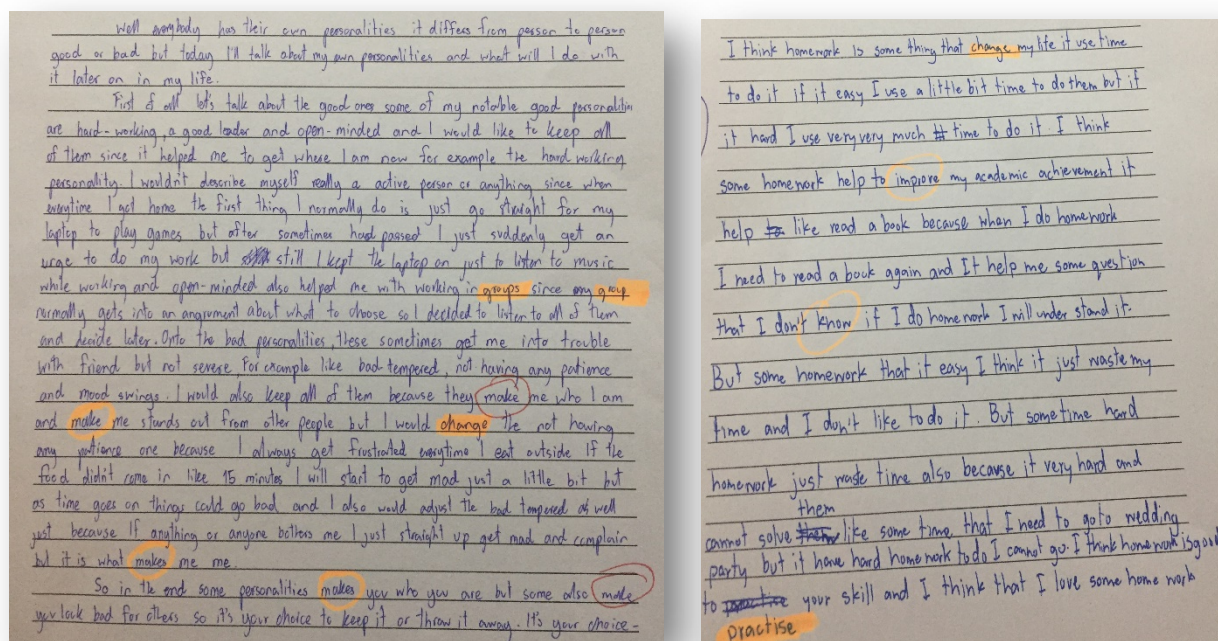 Well everybody has their own personalities it differs from person to person
good or bad but today I'll talk about my own personalities and what will I do with
it later on in my life.
First of all let's talk about the good ones some of my notable good personalities
are hard-working, a good leader and open-minded and I would like to keep all
of them since it helped me to get where I am now for example the hard working
personallity. I wouldn't describe myself really a active person or anything since when
everytime I got home the first thing I normally do is just go straight for my
laptop to play games but after sometimes had passed I just suddenly get an
urge to do my work but still I kept the laptop on just to listen to music
while working and open-minded also helped me with working in groups since my group
normally gets into an angrument about what to choose so I decided to listen to all of them
and decide later. Onto the bad personalities, these sometimes get me into trouble
with friend but not severe, For example like bad tempered, not having any patience
and mood swings. I would also keep all of them because they make me who I am
and make me stands out from other people but I would change the not having
any patience one because I always get frustrated everytime I eat outside If the
food didn't come in like 15 minutes I will start to get mad just a little bit but
as time goes on things could go bad and I also would adjust the bad tempered as well
just because If anything or anyone bothers me I just straight up get mad and complain
but it is what makes me me.
So in the end some personalities makes you who you are but some also make
you look bad for others so it's your choice to keep it or throw it away. It's your choice-
I think homework is some thing that change my life it use time
to do it if it easy I use a little bit time to do them but if
it hard I use very very much time to do it. I think
some homework help to improve my academic achievement it
help like read a book because when I do homework
I need to read a book again and It help me some question
that I don't know if I do homework I will under stand it.
But some homework that it easy I think it just waste my
time and I don't like to do it. But some time hard
homework just waste time also because it very hard and
cannot solve them like some time, that I need to go to wedding
party but it have hard homework to do I cannot go. I think homework is good
to practise your skill and I think that I love some home work